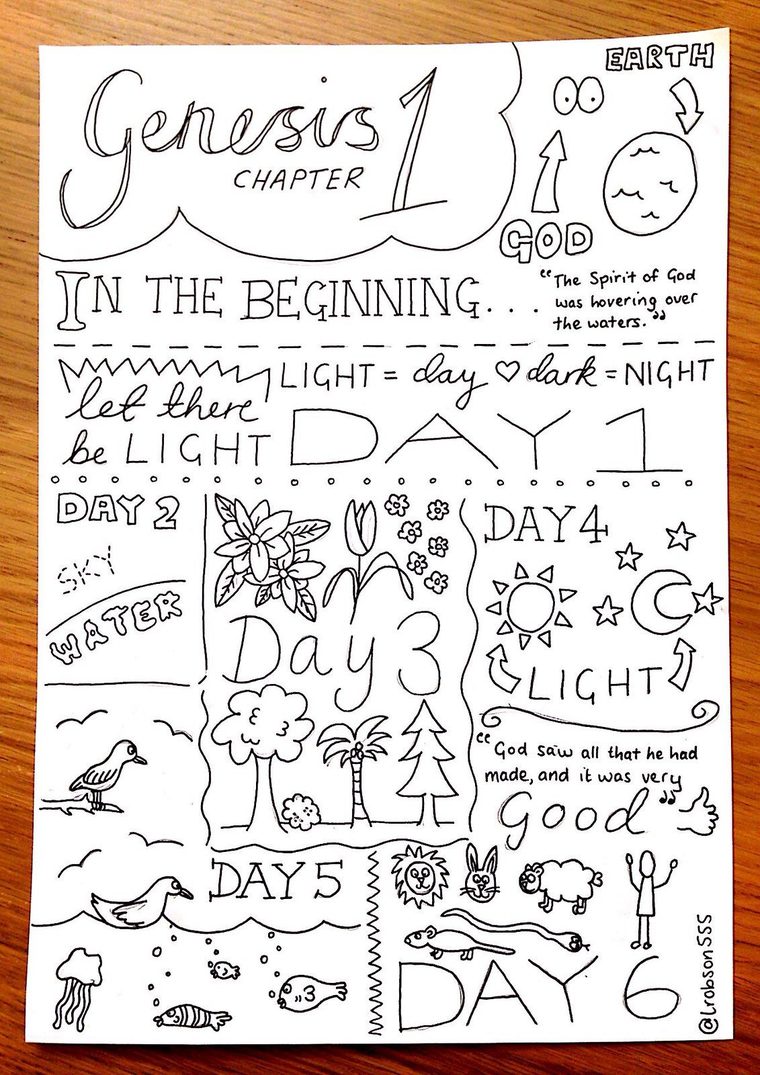 Genesis 1
CHAPTER
EARTH
GOD
IN THE BEGINNING...
"The Spirit of God
was hovering over
the waters."
let there
be LIGHT
LIGHT = day ♡ dark = NIGHT
DAY 1
DAY 2
SKY
WATER
Day 3
DAY 4
LIGHT
"God saw all that he had
made, and it was very
Good"
DAY 5
DAY 6
@lrobson555